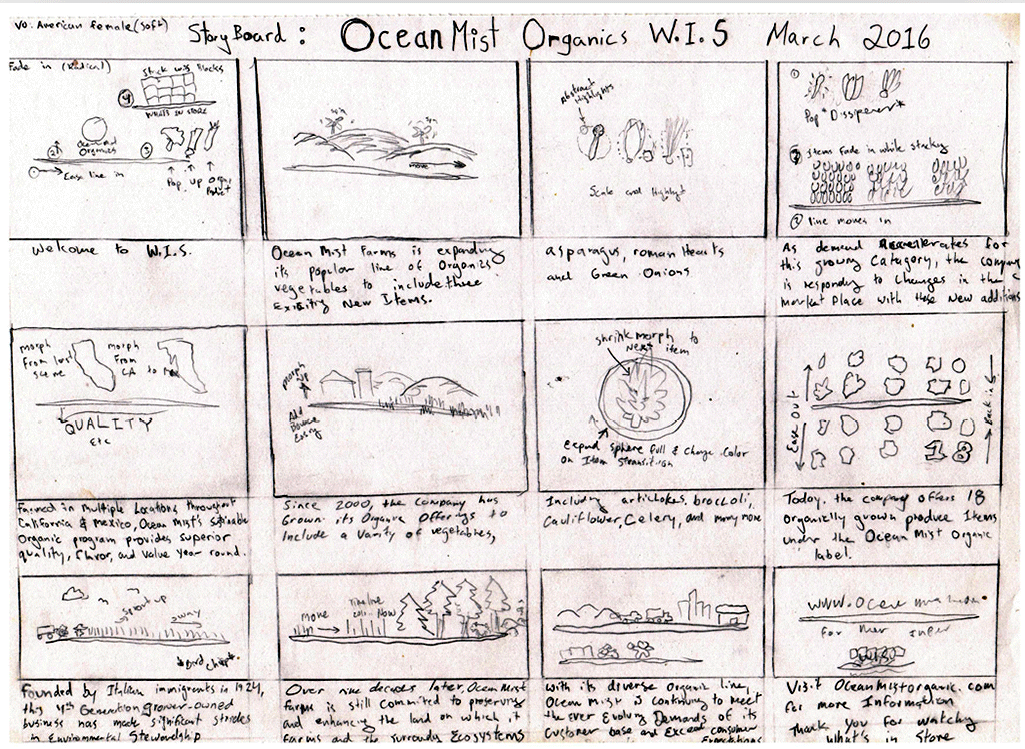 VO: American female (soft)
StoryBoard: Ocean Mist Organics W.I.S March 2016
Fade in (Radical)
Stack w.is Blocks
4
WHATS IN STORE
2
Organics
3
1
Ease line in
Pop up
Welcome to W.I.S.
move
Ocean Mist Farms is expanding
its popular line of Organic
vegetables to include three
Exiciting New Items.
Abstract
Highlights
Scale and Highlight
asparagus, roman Hearts
and Green Onions
1
Pop * Dissipenser *
3 Items Fade in while stacking
2 line moves in
As demand Accellerates for
this growing Catagory, the company
is responding to Changes in the
Market Place with these New additions
morph
From last
scene
morph
From
CA to
QUALITY
Etc
Farmed in Multiple Locations throughout
California & Mexico, Ocean Mist's
Organic program provides superior
quality, Flavor, and value year round.
Morph
up
Add
Bounce
Since 2000, the Company has
Grown its Organic Offerings to
Include a Varity of vegetables,
shrink morph to
Next item
expand sphere full & Change Color
on Item Transition
Including artichokes, broccoli,
Cauliflower, Celery, and many more
Ease Out
Back in
18
Today, the company offers 18
Organically grown produce Items
under the Ocean Mist Organic
label.
Sprout up
sway
* Bird Chirp *
Founded by Italian immigrants in 1924,
this 4th Generation grower-owned
business has made significant strides
in Environmental Stewardship
move
Timeline
Now
Over nine decades later, Ocean Mist
Farms is still commited to preserving
and enhancing the land on which it
farms and the surroundy Ecosystems
With its diverse Organic line,
Ocean Mist is Continuing to Meet
the Ever Evolving Demands of its
Customer base and Exceed consumer
Expectations
www.Ocean
for
Visit OceanMistorganic.com
for more Information
Thank you for watching
what's in Store